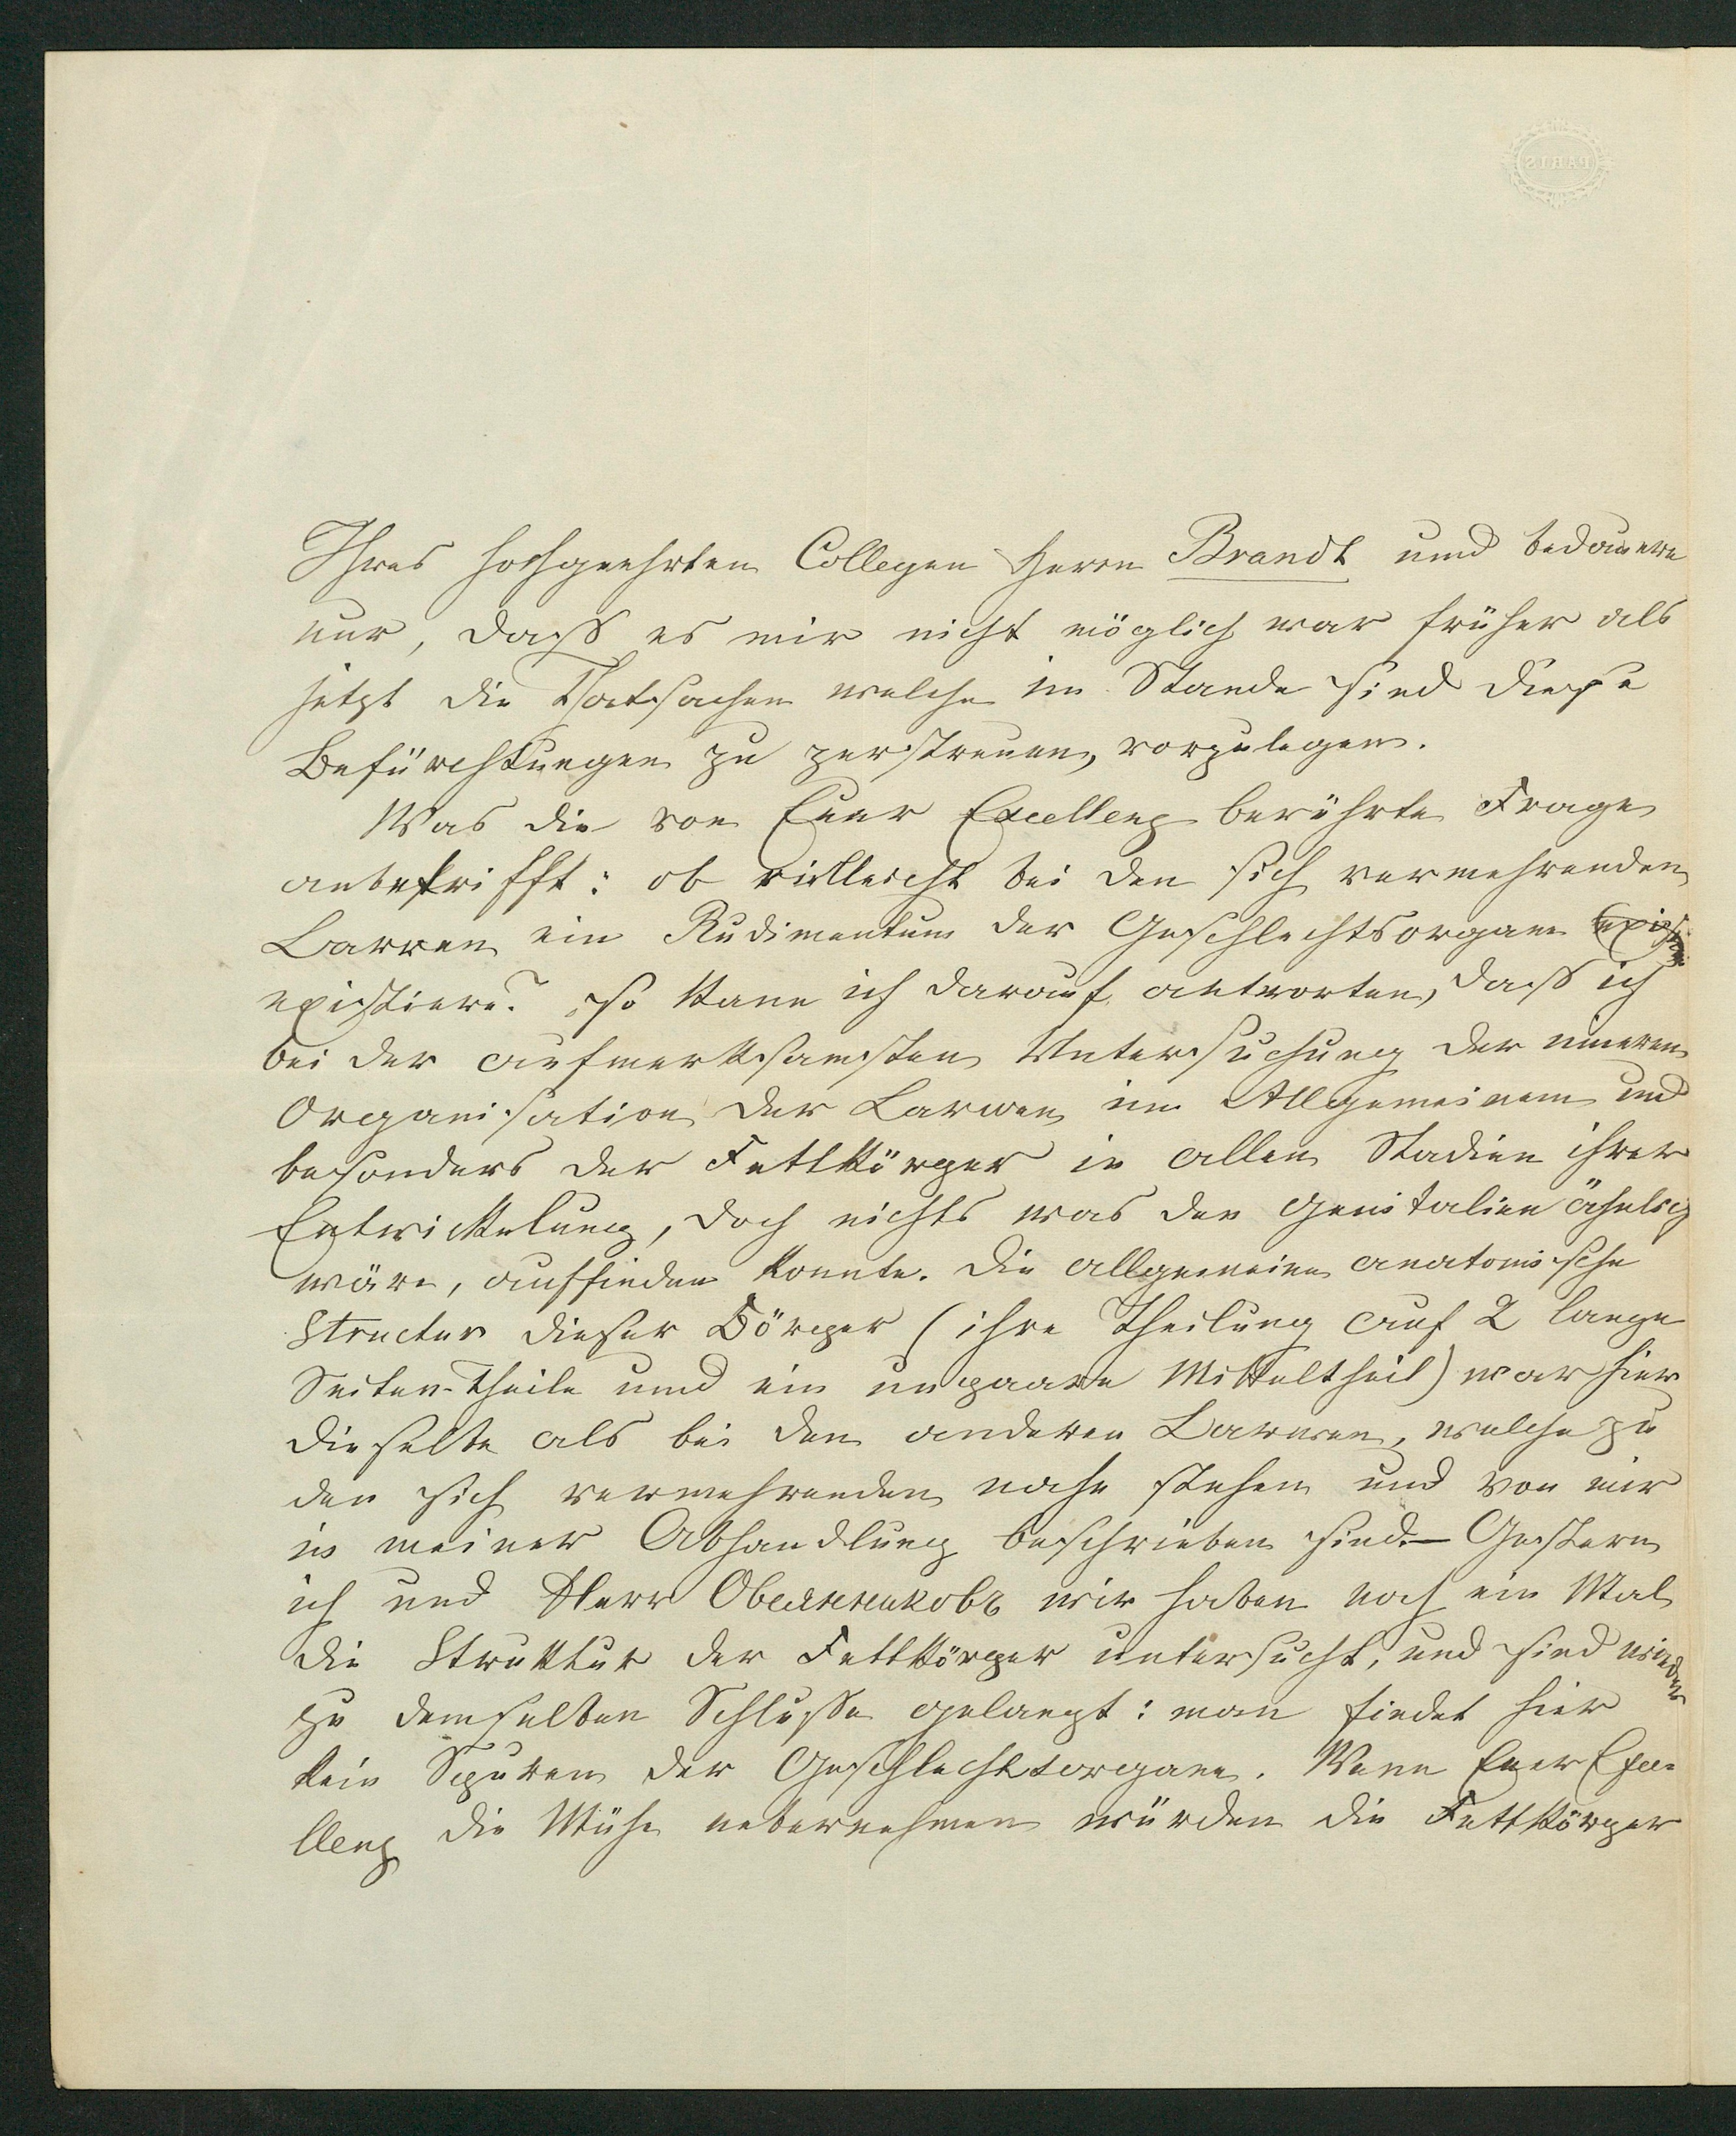 Ihres hochgeehrten Collegen Herrn Brandt und bedauere
nur, dass es mir nicht möglich war früher als
jetzt die Thatsachen welche im Stande sind diese
Befürchtungen zu zerstreuen, vorzulegen.
Was die von Euer Excellenz berührte Frage
anbetrifft: ob vielleicht bei den sich vermehrenden
Larven ein Rudimentum der Geschlechtsorgane
existiere? so kann ich darauf antworten, dass ich
bei der aufmerksamsten Untersuchung der inneren
Organisation der Larven im Allgemeinem und
besonders der Fettkörper in allen Stadien ihrer
Entwickelung, doch nichts was den Genitalien ähnlich
wäre, auffinden konnte. Die allgemeine anatomische
Structur dieser Körper (ihre Theilung auf 2 lange
Seiten-Theile und ein unpaare Mitteltheil) war hier
dieselbe als bei den anderen Larven, welche zu
den sich vermehrenden nahe stehen und von mir
in meiner Abhandlung beschrieben sind. — Gestern
ich und Herr Овсянниковъ wir haben noch ein Mal
die Struktur der Fettkörper untersucht, und sind wieder
zu demselben Schlusse gelangt: man findet hier
kein Spuren der Geschlechtsorgane. Wenn Euer Exce-
llenz die Mühe uebernehmen würden die Fettkörper
PARIS